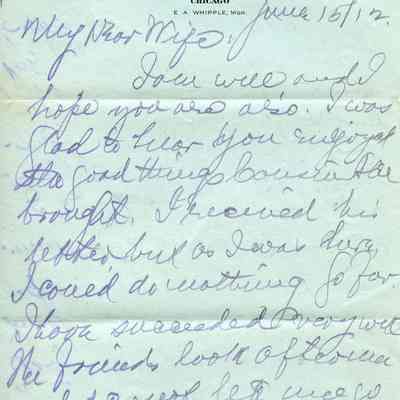 CHICAGO
E. A. WHIPPLE, MGR.
June 15/12.
My Dear Wife,
I am well and I
hope you are also. I was
glad to hear you enjoyed
the good things Cousin
brought. I received his
letter but as I was
I could do nothing so far.
I have succeeded very well
the friends look after me
not let me go